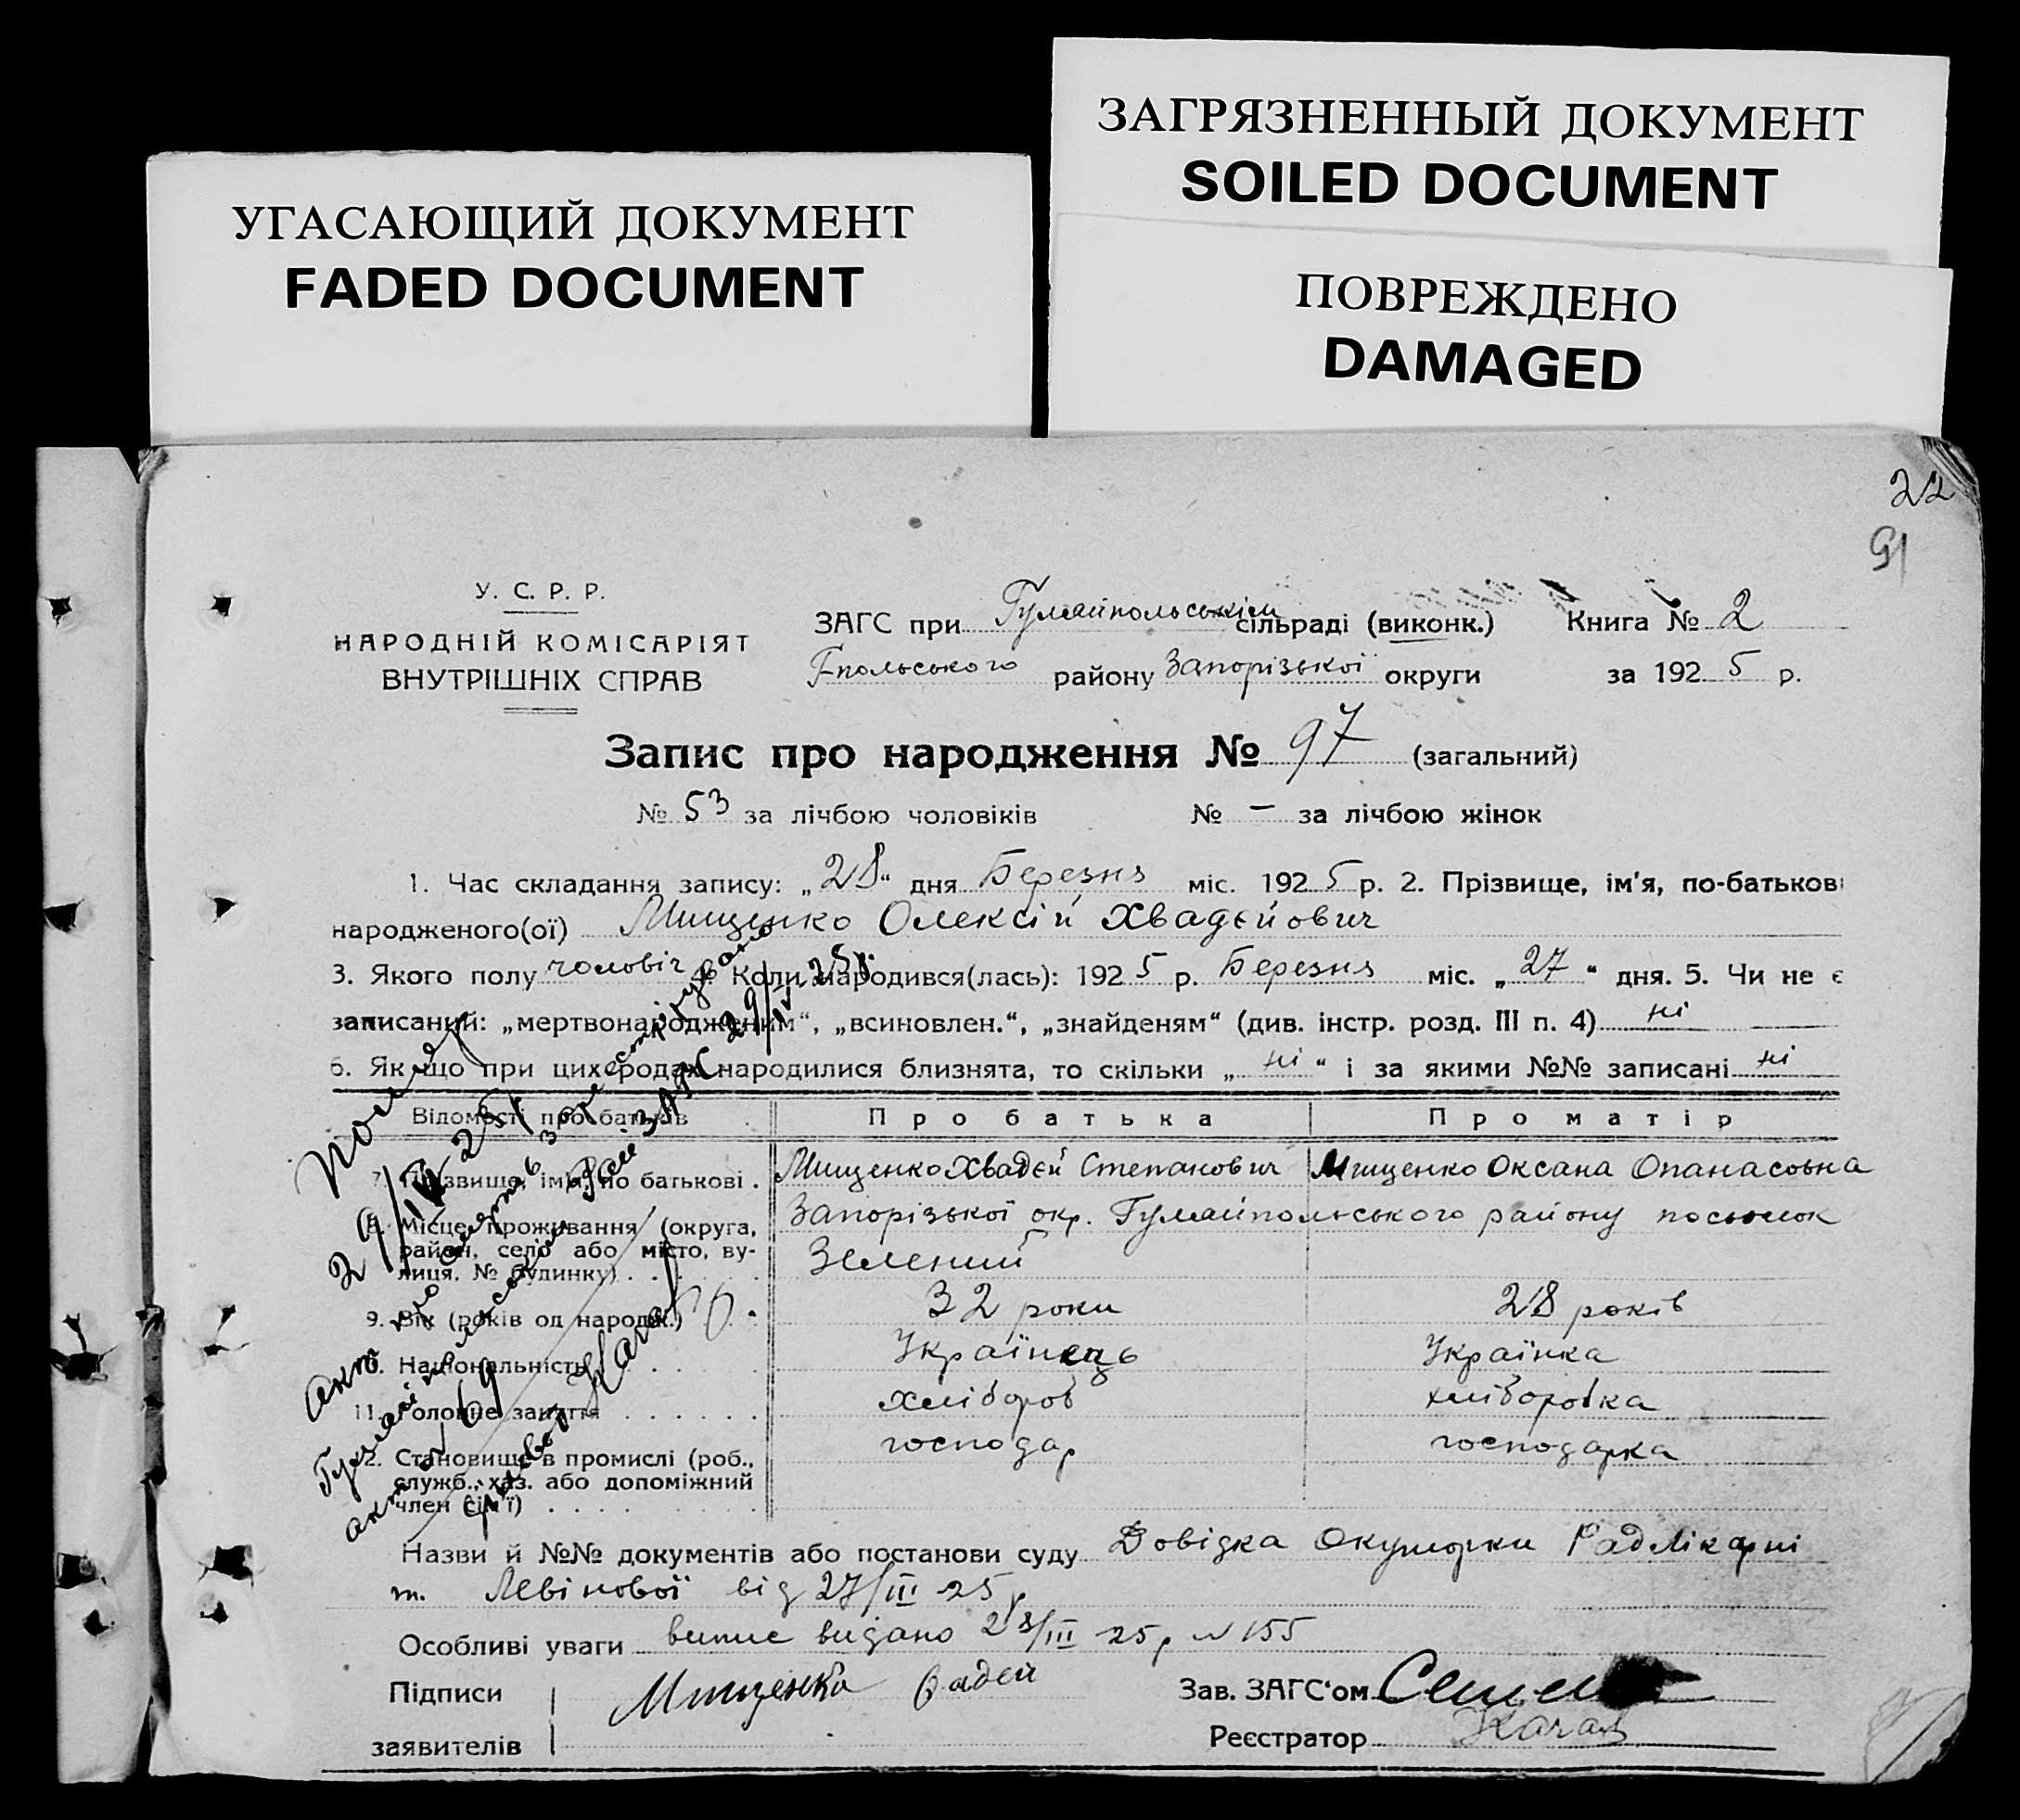 ЗАГРЯЗНЕННЫЙ ДОКУМЕНТ
SOILED DOCUMENT
УГАСАЮЩИЙ ДОКУМЕНТ
FADED DOCUMENT
ПОВРЕЖДЕНО
DAMAGED
22
91
У. С. Р. Р.
НАРОДНІЙ КОМІСАРІЯТ
ВНУТРІШНІХ СПРАВ
ЗАГС при Гуляйпольськім сільраді (виконк.) Книга № 2
Г-польського району Запорізької округи за 1925 р.
Запис про народження № 97 (загальний)
№ 53 за лічбою чоловіків № — за лічбою жінок
1. Час складання запису: „28“ дня Березня міс. 1925 р. 2. Прізвище, ім'я, по-батькові
народженого(ої) Мищенко Олексій Хвадєйович
3. Якого полу чоловіч Коли народився(лась): 1925 р. Березня міс. „27“ дня. 5. Чи не є
записаний: „мертвонародженим“, „всиновлен.“, „знайденям“ (див. інстр. розд. III п. 4) ні
6. Як що при цих родах народилися близнята, то скільки „ні“ і за якими №№ записані ні
Відомості про батьків Про батька Про матір
7. Прізвище, ім'я, по батькові . Мищенко Хвадєй Степанович Мищенко Оксана Опанасовна
8. Місце проживання (округа, Запорізької окр. Гуляйпольського району посьолок
район, село або місто, ву- Зелений
лиця, № будинку) . . .
9. Вік (років од народж.) 32 роки 28 років
10. Національність Українець Українка
11. Головне заняття . . . . . . хлібороб хліборобка
12. Становище в промислі (роб., господар господарка
служб., хаз. або допоміжний
член сім'ї) . . . . . .
Назви й №№ документів або постанови суду Довідка Окушорки Радлікарні
т. Левінової від 27/III 25 р
Особливі уваги випис видано 28/III 25 р N 155
Підписи Мищенко Фадей Зав. ЗАГС'ом
заявителів Реєстратор
Помер
29/IV 25 р
акт про смерть зареєстрірувано
Гуляйпольським Рай ЗАГС 29/IV 25 р.
акт № 69